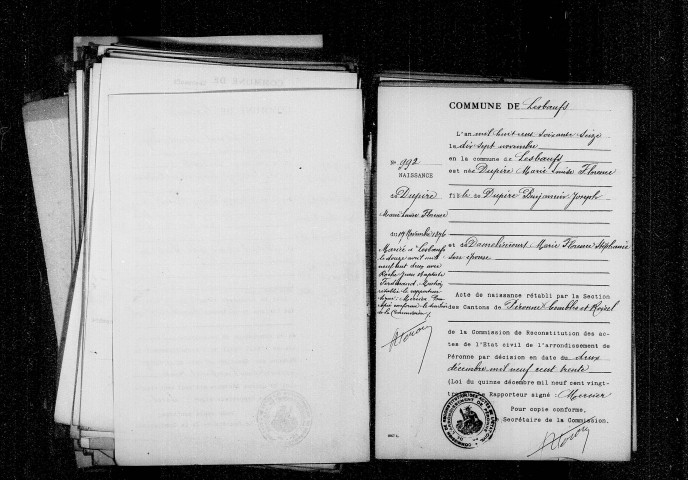 COMMUNE DE Lesbœufs
N° 992
NAISSANCE
de Dupire
Marie Louise Florence
du 17 Novembre 1876
Mariée à Lesbœufs
le douze avril mil
neuf cent deux avec
Roche Jean Baptiste
Ferdinand.
L'an mil huit cent soixante seize
le dix sept novembre
en la commune de Lesbœufs
est née Dupire Marie Louise Florence
fille de Dupire Benjamin Joseph
et de Damelincourt Marie Florence Stéphanie
son épouse
Acte de naissance rétabli par la Section
des Cantons de Péronne Combles et Roisel
de la Commission de Reconstitution des ac-
tes de l'Etat civil de l'arrondissement de
Péronne par décision en date du deux
décembre mil neuf cent trente
(Loi du quinze décembre mil neuf cent vingt-
Rapporteur signé : Mercier
Pour copie conforme,
Secrétaire de la Commission.